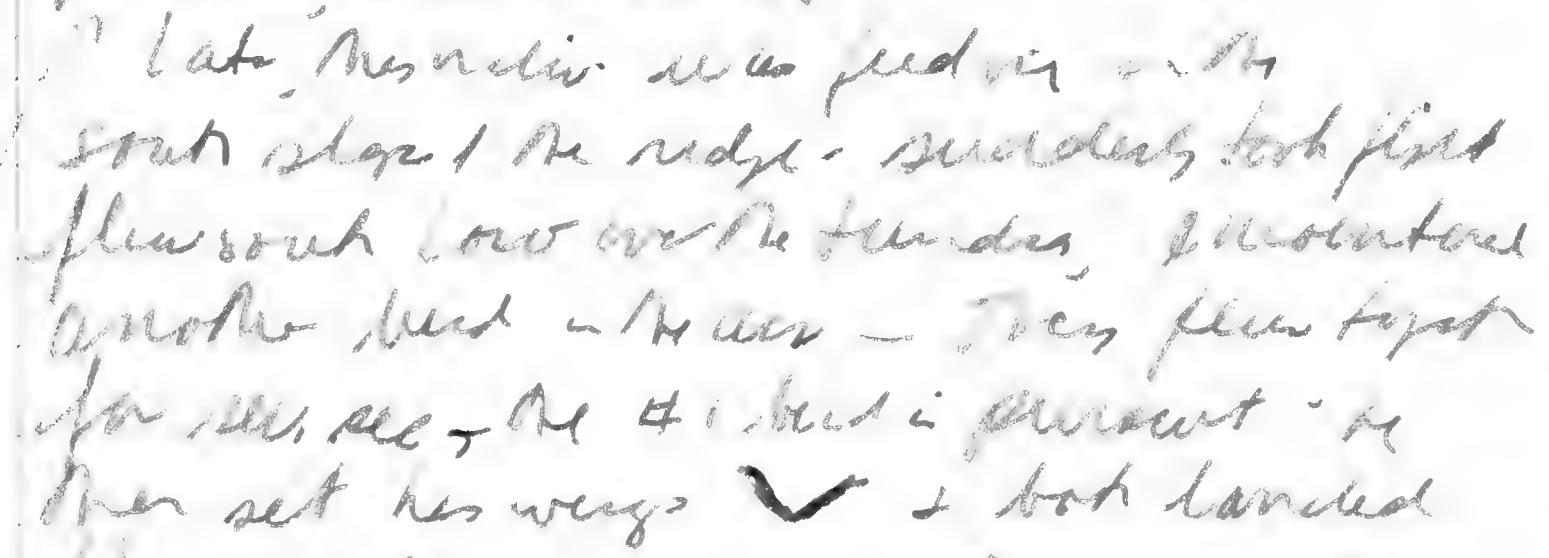 " Later this indiv. was feeding on the
south slope of the ridge - suddenly took flight
flew south low over the tundra, encountered
another bird in the air — They flew together
for sev. sec, the #1 bird in pursuit - he
then set his wings V & both landed